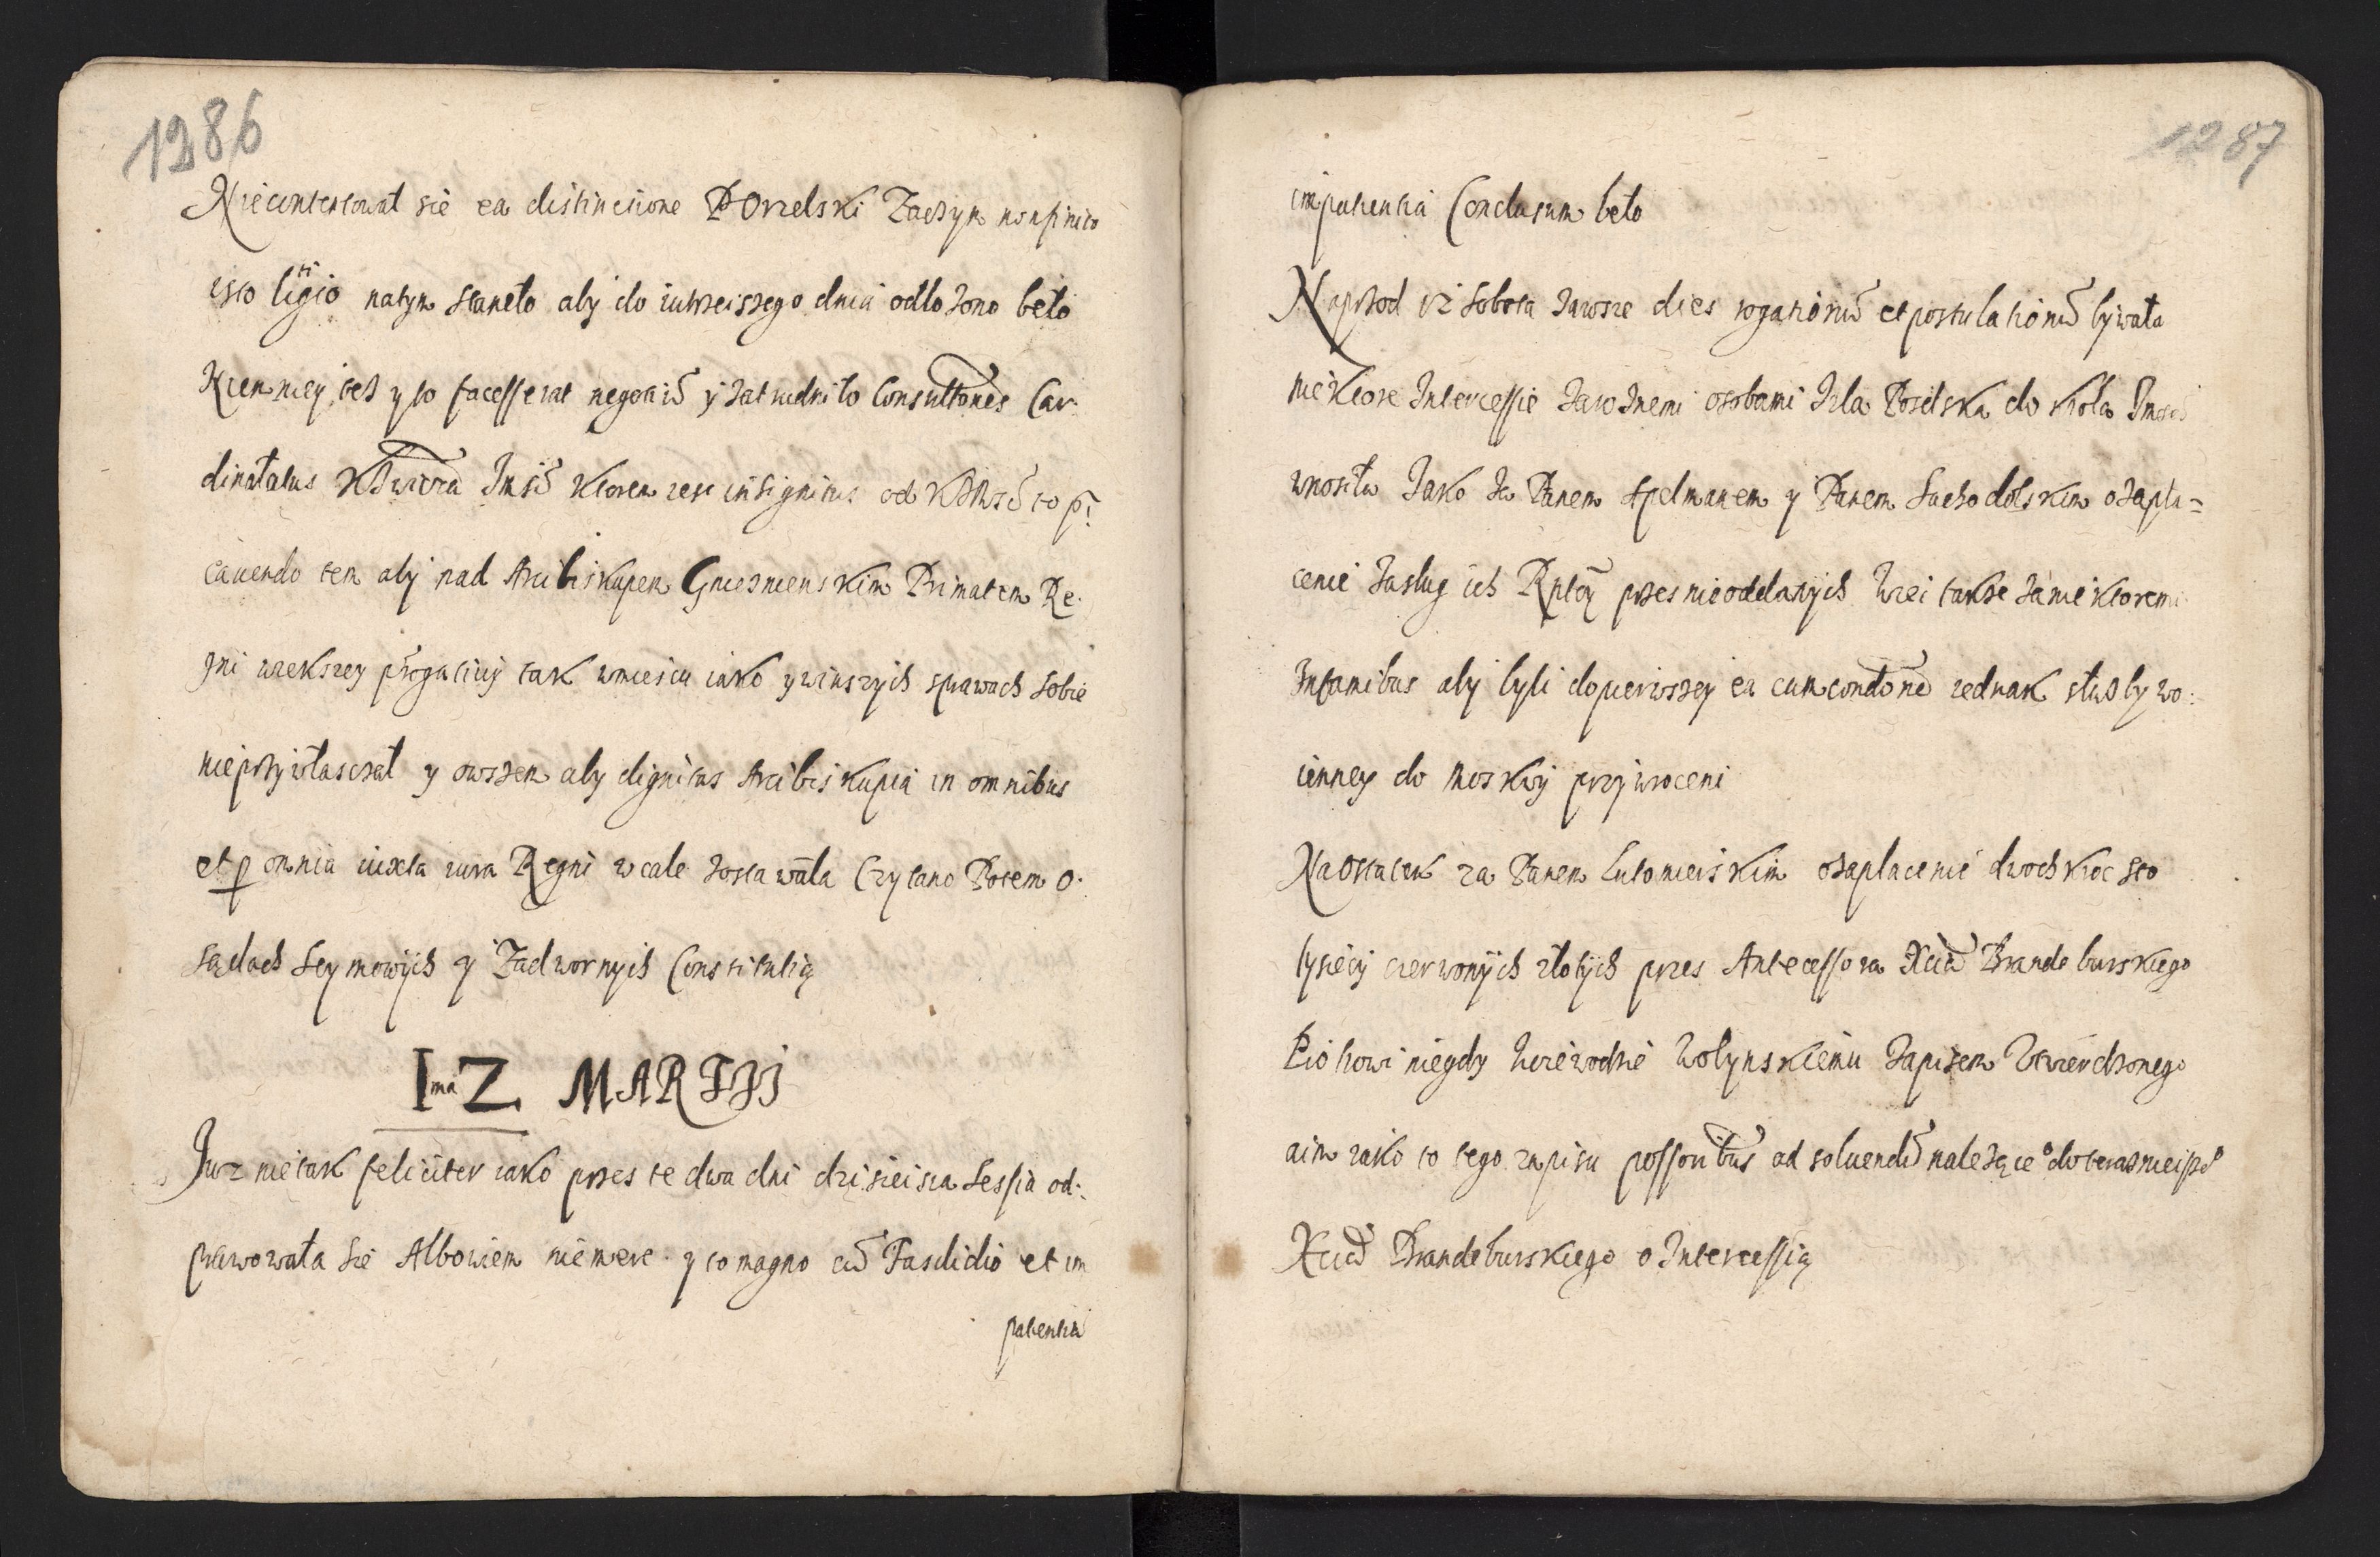 1286
Niecontentował sie ea distinctione P Orzelski Zaczym non finito
isto litigio natym staneło aby do iutrzeiszego dnia odłożono beło
Niemniey też y to facesserat negotiũ y zatrudniło Consultõnes Car.
dinałatus Imśc̃ ktorem iest insignitus od to
cauendo tem aby nad Arcibiskupem Gnieznienskim Primatem Re.
gni wiekszey p̃rogatiwy tak wmieiscu iako y winszych sprawach sobie
nieprzywłasczał y owszem aby dignitas Arcibiskupia in omnibus
et p omnia iuxta iura Regni wcale zostawała Czytano Potem o.
sądach Seymowych y Zadwornych Constitutią
I ma Z MARTII
Iuz nie tak feliciter iako przes te dwa dni dzisieisza Sessia od:
prawowała sie Albowiem niemere y to magno cũ Fastidio et im
patentia
1287
impatientia Conclusum beło
Naprzod iż sobota zawsze dies rogationũ et postulationũ bywała
niektore Intercessie zarożnemi osobami Izba Poselska do Krola Imści
wnosiła Jako za Panem Apelmanem y Panem Suchodolskim o zapła=
cenie zasług ich Rptey przes nieodelanych także zaniektoremi
Infamibus aby byli dopierwszey ea cum condõne iednak słuzby wo:
ienney do Moskwy przywroceni
Naostatek za Panem Lutomirskim ozapłacenie dwochkroc sto
tysięcy czerwonych złotych przes Antecessora Xcia Brandeburskiego
niegdy Woiewodzie Wołynskiemu zapisem Utwierdzonego
aim iako to tego zapisu possoribus ad soluendũ należące do teraznieiszo
Xcia Brandeburskiego o Intercessią